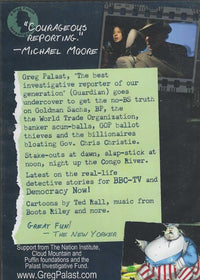 "COURAGEOUS
REPORTING."
—MICHAEL MOORE
Greg Palast, "The best
investigative reporter of our
generation" (Guardian) goes
undercover to get the no-BS truth
on Goldman Sachs, BP, the
the World Trade Organization,
banker scum-balls, GOP ballot
thieves and the billionaires
bloating Gov. Chris Christie.
Stake-outs at dawn, slap-stick at
noon, night up the Congo River.
Latest on the real-life
detective stories for BBC-TV and
Democracy Now!
Cartoons by Ted Rall, music from
Boots Riley and more.
GREAT FUN!
— THE NEW YORKER
Support from The Nation Institute,
Cloud Mountain and
Puffin foundations and the
Palast Investigative Fund.
www.GregPalast.com